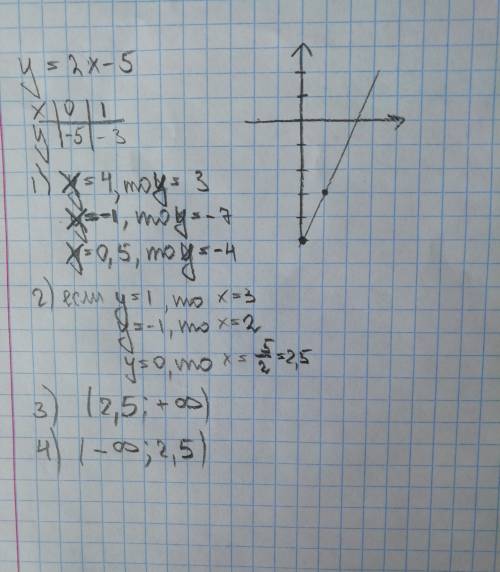 y = 2x - 5
x | 0 | 1
y | -5 | -3
1) x = 4, то y = 3
x = -1, то y = -7
x = 0,5, то y = -4
2) если y = 1, то x = 3
y = -1, то x = 2
y = 0, то x = 5/2 = 2,5
3) (2,5; +∞)
4) (-∞; 2,5)